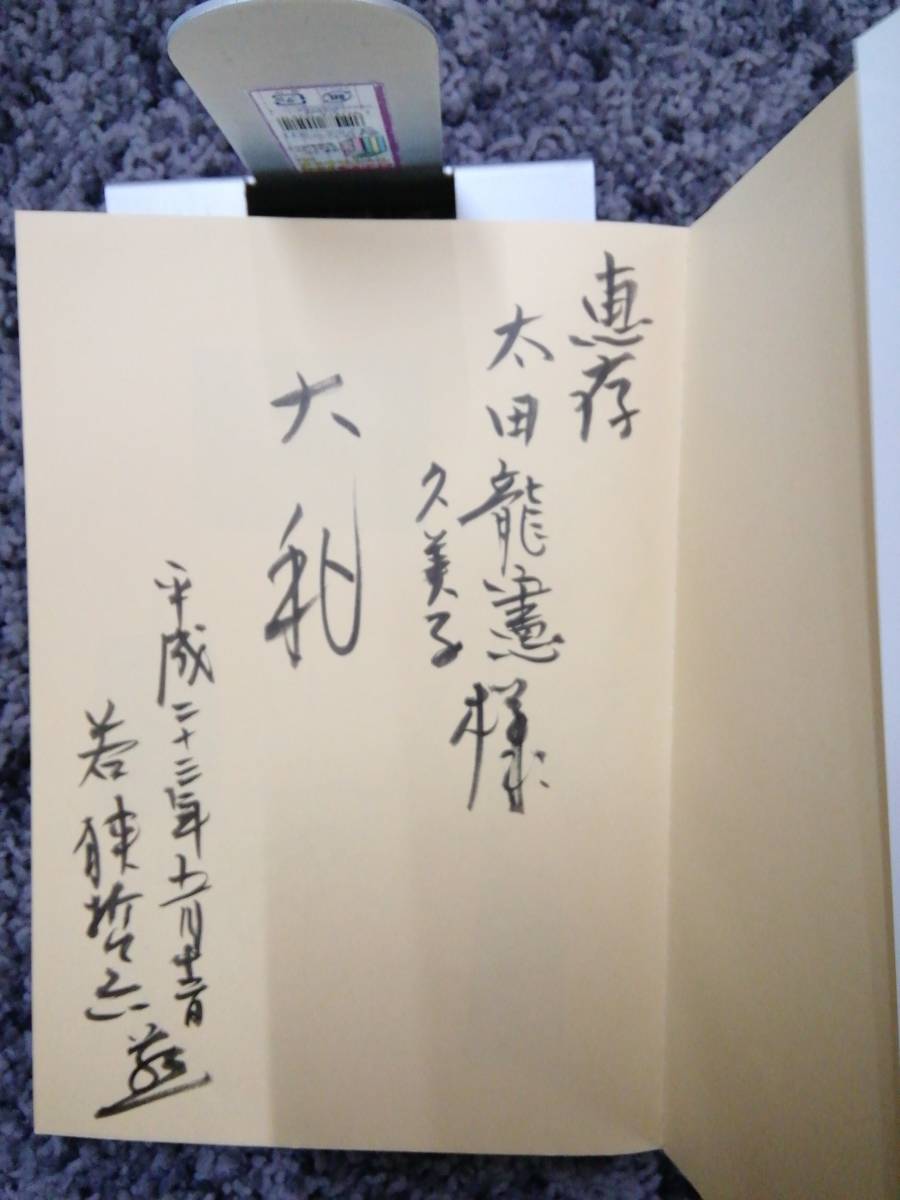 恵存
太田龍憲様
久美子
大利
平成二十三年十一月十二日
若狭哲六